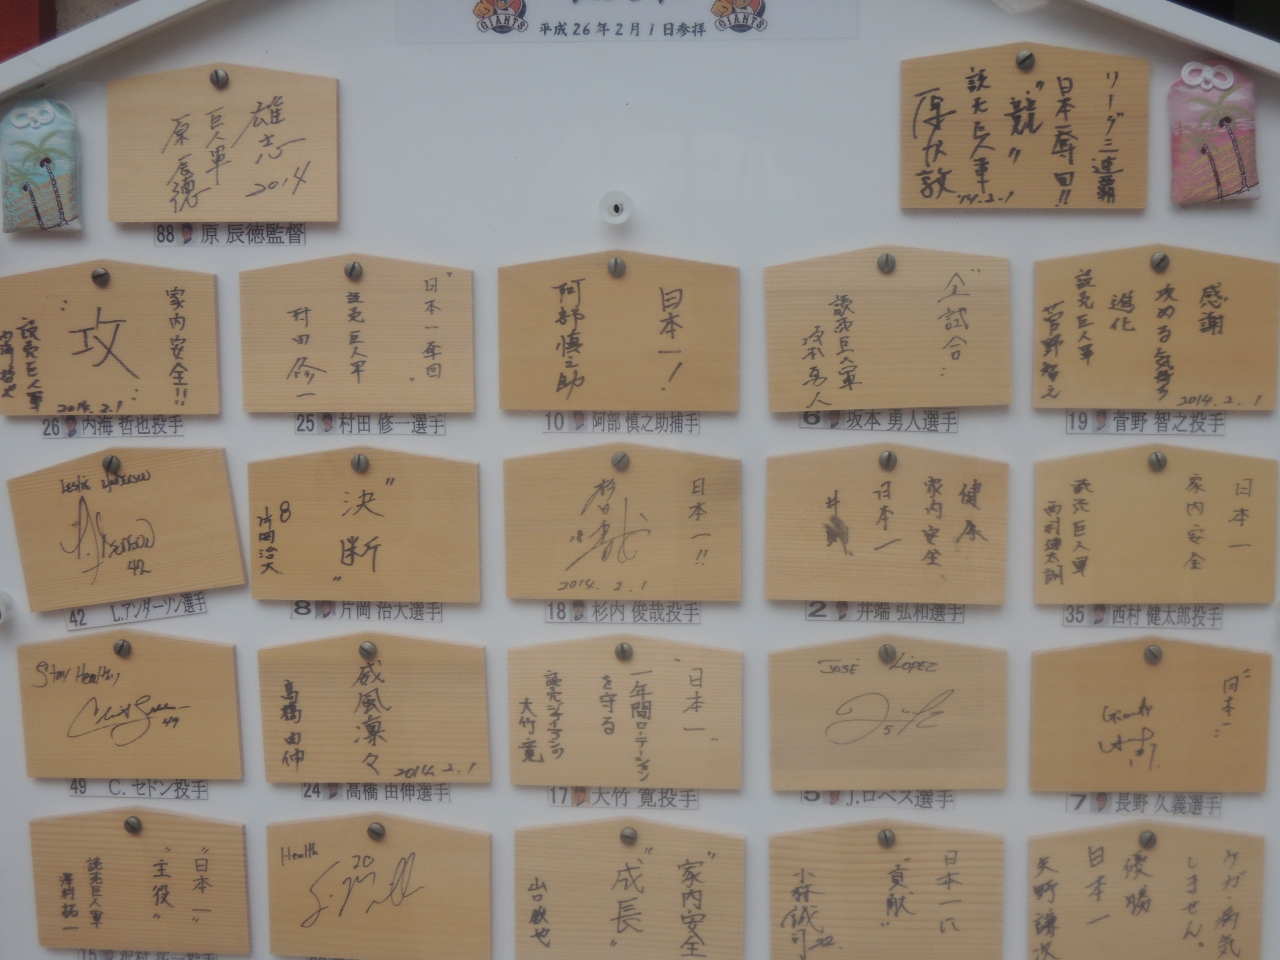 GIANTS
GIANTS
平成26年2月1日参拝
雄志
2014
巨人軍
原 辰徳
88 原 辰徳監督
リーグ三連覇
日本奪回!!
"競"
読売巨人軍
原沢敦
'14.2.1
家内安全!!
"攻"
読売巨人軍
内海哲也
2014.2.1
26 内海 哲也投手
"日本一奪回"
読売巨人軍
村田修一
25 村田 修一選手
日本一!
阿部慎之助
10 阿部 慎之助捕手
"全試合"
読売巨人軍
坂本勇人
6 坂本 勇人選手
感謝
攻める気持ち
進化
読売巨人軍
菅野智之
2014.2.1
19 菅野 智之投手
Leslie Anderson
42
42 L.アンダーソン選手
"決断"
8
片岡治大
8 片岡 治大選手
日本一!!
杉内
2014.2.1
18 杉内 俊哉投手
健康
家内安全
日本一
井端
2 井端 弘和選手
日本一
家内安全
読売巨人軍
西村健太朗
35 西村 健太郎投手
Stay Healthy
49
49 C. セドン投手
威風凛々
高橋由伸
2014.2.1
24 高橋 由伸選手
"日本一"
一年間ローテーション
を守る
読売ジャイアンツ
大竹寛
17 大竹 寛投手
JOSÉ LÓPEZ
5
5 J.ロペス選手
"日本一"
Giants
7 長野 久義選手
"日本一"
"主役"
読売巨人軍
澤村拓一
Health
20
"家内安全"
"成長"
山口鉄也
日本一に
"貢献"
小林誠司 22.
ケガ・病気
しません。
優勝
日本一
矢野謙次